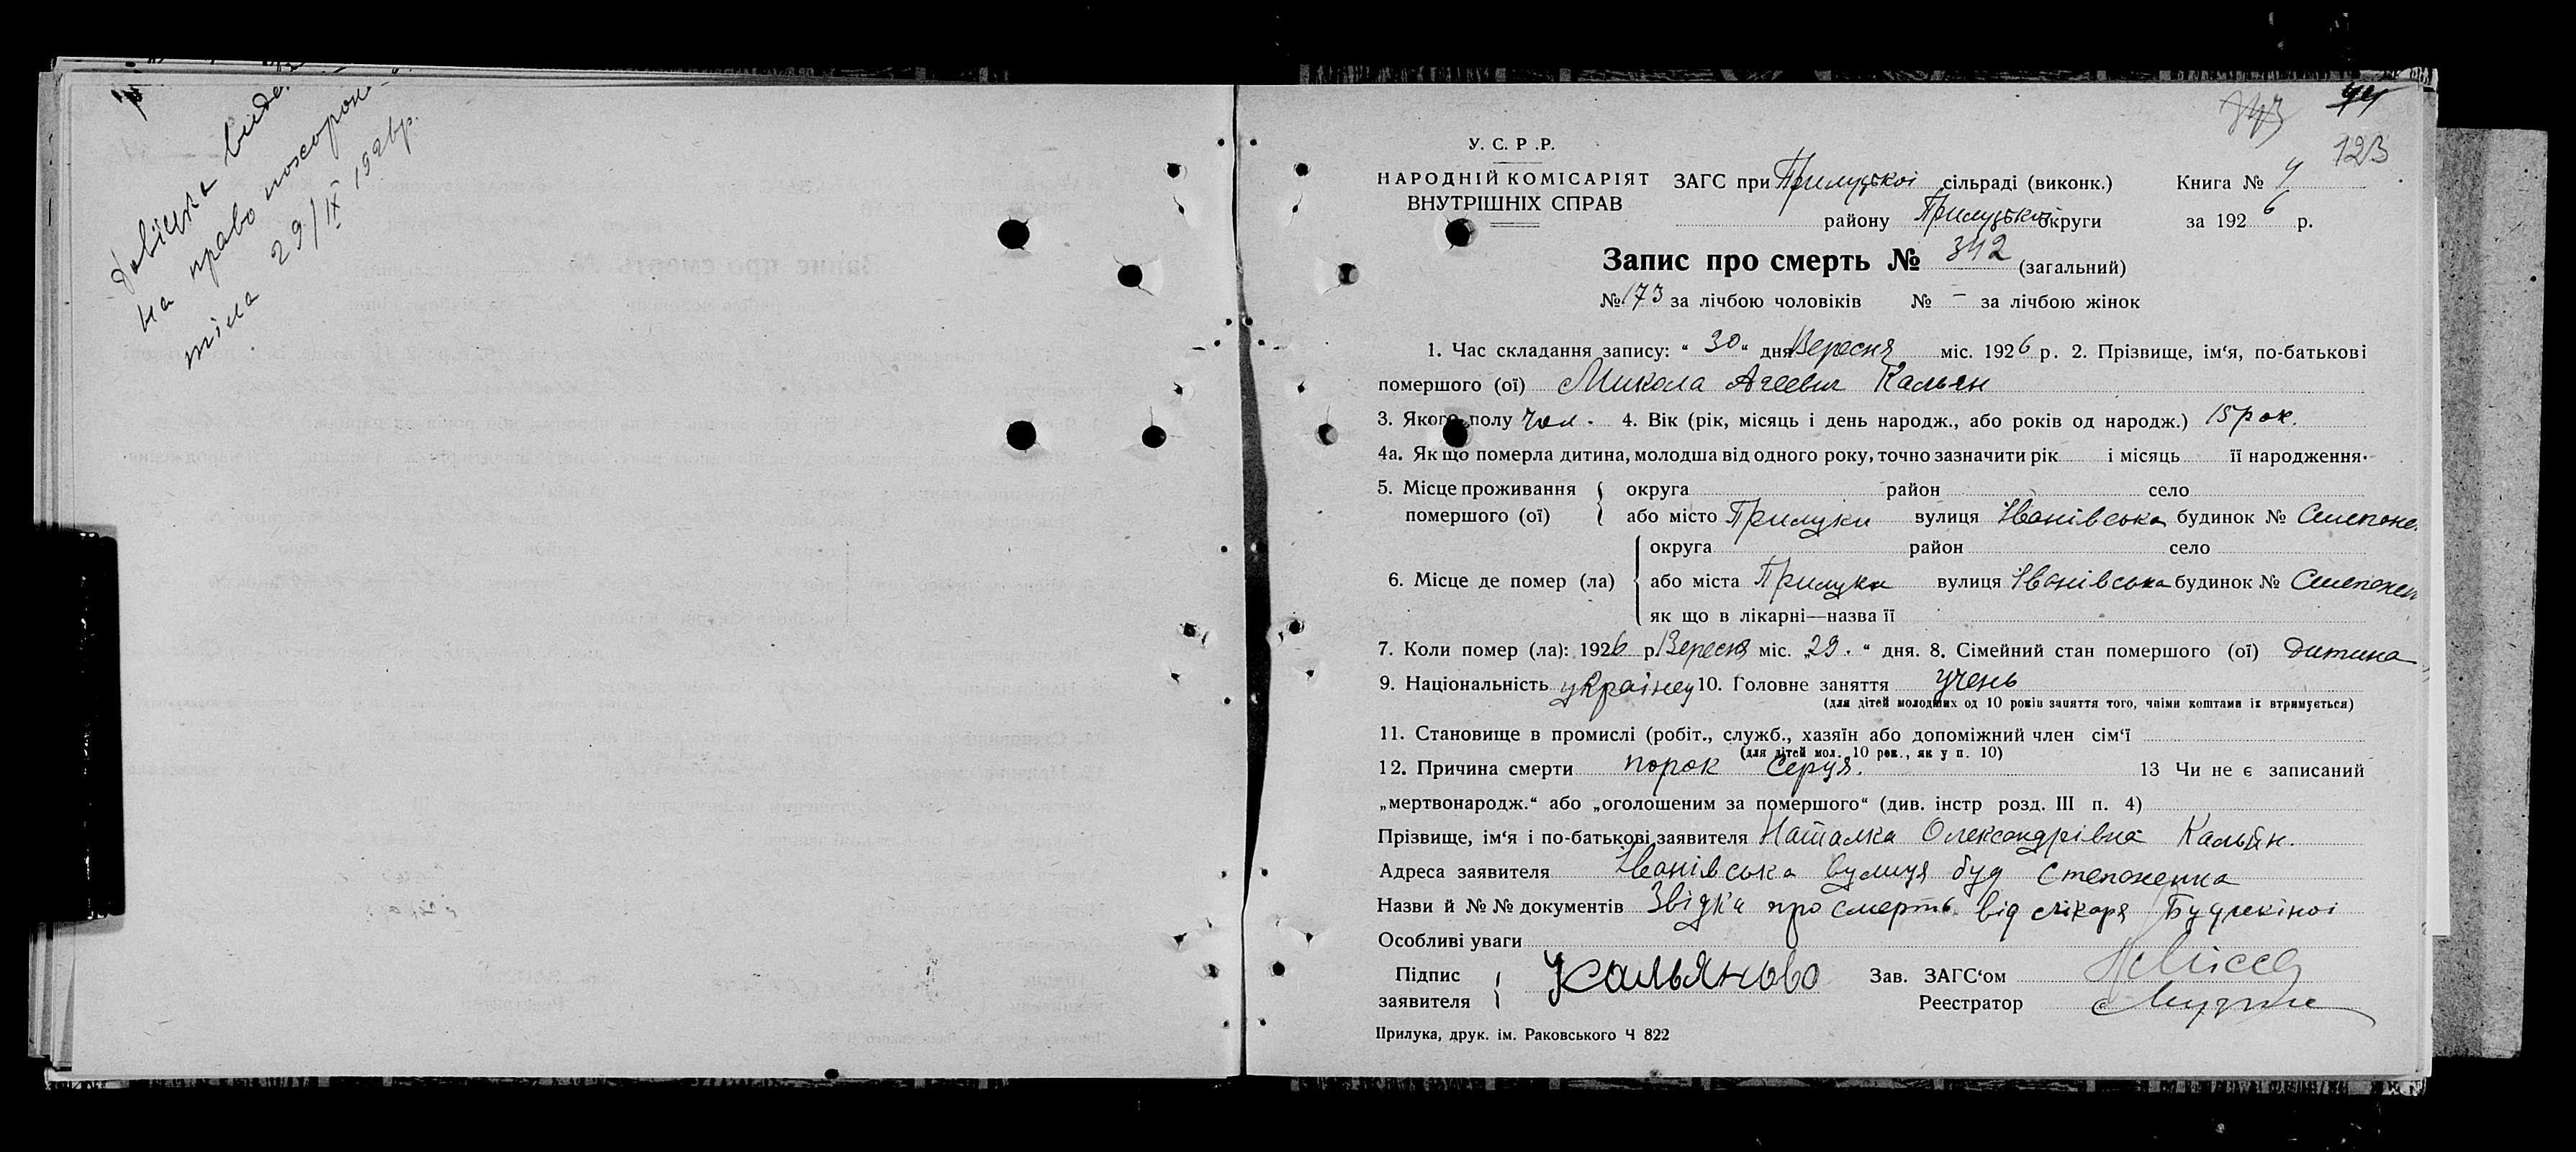 Довідка вида.
на право похорон
тіла 29/IX 1926р.
123
У. С. Р. Р.
НАРОДНІЙ КОМІСАРІЯТ ЗАГС при Прилуцької сільраді (виконк.) Книга №
ВНУТРІШНІХ СПРАВ району Прилуцької округи за 1926 р.
Запис про смерть № 342 (загальний)
№ 173 за лічбою чоловіків № – за лічбою жінок
1. Час складання запису: “ 30 “ дня Вересня міс. 1926 р. 2. Прізвище, ім‘я, по-батькові
помершого (ої) Микола Агеевич Кальян
3. Якого полу чол. 4. Вік (рік, місяць і день народж., або років од народж.) 15 рок.
4а. Як що померла дитина, молодша від одного року, точно зазначити рік і місяць її народження.
5. Місце проживання округа район село
помершого (ої) або місто Прилуки вулиця Іванівська будинок № Степоне.
округа район село
6. Місце де помер (ла) або міста Прилуки вулиця Іванівська будинок № Степонен
як що в лікарні—назва її
7. Коли помер (ла): 1926 р. Вересня міс. „29.“ дня. 8. Сімейний стан помершого (ої) дитина
9. Національність українец 10. Головне заняття учень
(для дітей молодших од 10 років заняття того, чиїми коштами їх втримується)
11. Становище в промислі (робіт., служб., хазяїн або допоміжний член сім‘ї
(для дітей мол. 10 рок., як у п. 10)
12. Причина смерти порок серця. 13 Чи не є записаний
„мертвонародж.“ або „оголошеним за помершого“ (див. інстр розд. III п. 4)
Прізвище, ім‘я і по-батькові заявителя Наталка Олександрівна Кальян.
Адреса заявителя Іванівська вулиця буд Степоненка
Назви й № № документів Звідка про смерть від лікаря
Особливі уваги
Підпис Кальянова Зав. ЗАГС‘ом
заявителя Реестратор
Прилука, друк. ім. Раковського Ч 822